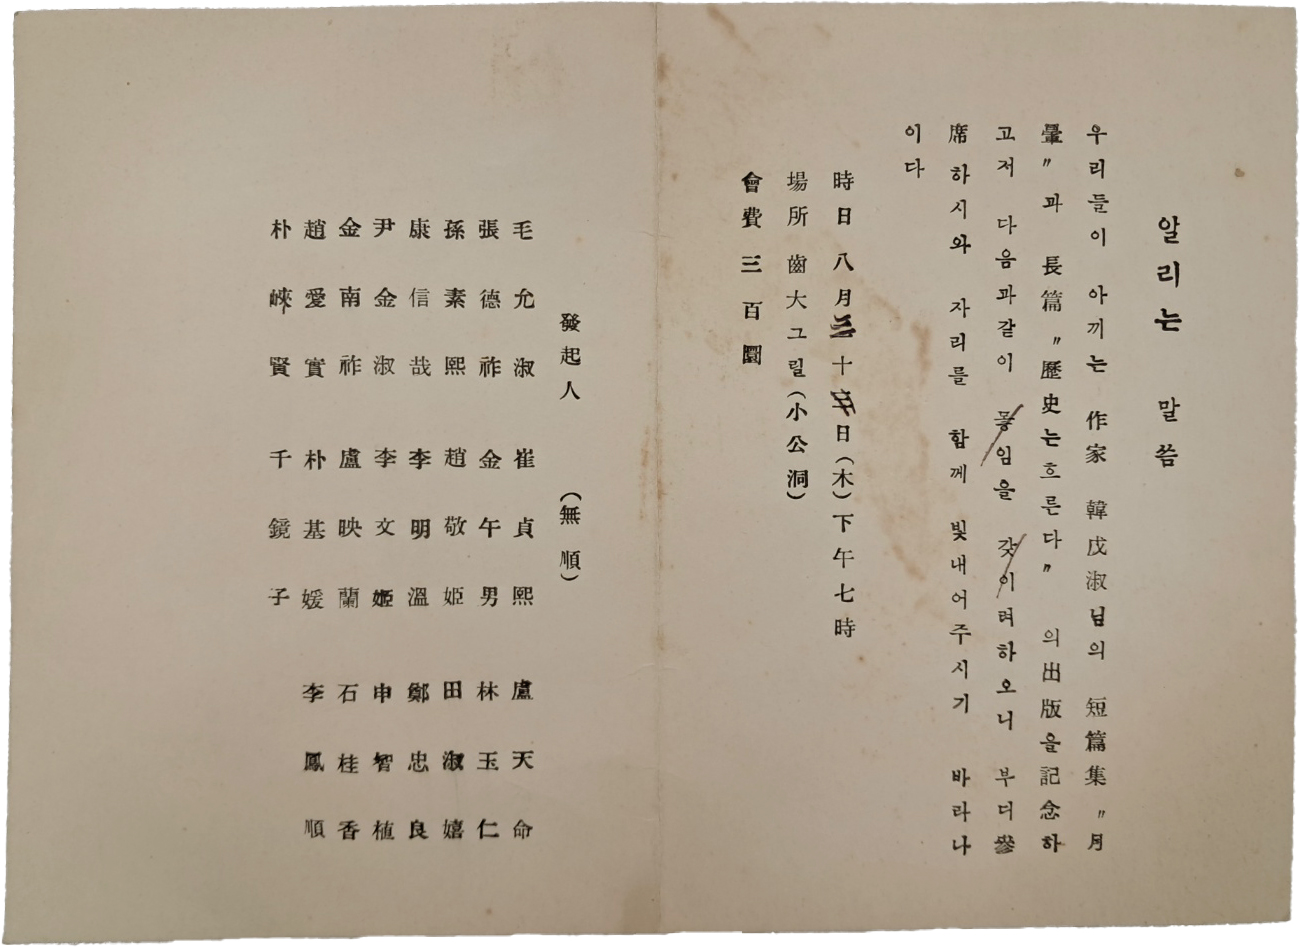 알리는 말씀
우리들이 아끼는 作家 韓戊淑님의 短篇集 〃月
暈〃과 長篇 〃歷史는흐른다〃 의出版을記念하
고저 다음과같이 뫃임을 갖이려하오니 부디參
席하시와 자리를 함께 빛내어주시기 바라나
이다
時日 八月三十日(木)下午七時
場所 齒大그릴(小公洞)
會費 三百圜
發起人 (無順)
毛允淑 崔貞熙 盧天命
張德祚 金午男 林玉仁
孫素熙 趙敬姫 田淑嬉
康信哉 李明溫 鄭忠良
尹金淑 李文姬 申智植
金南祚 盧映蘭 石桂香
趙愛實 朴基媛 李鳳順
朴峽賢 千鏡子